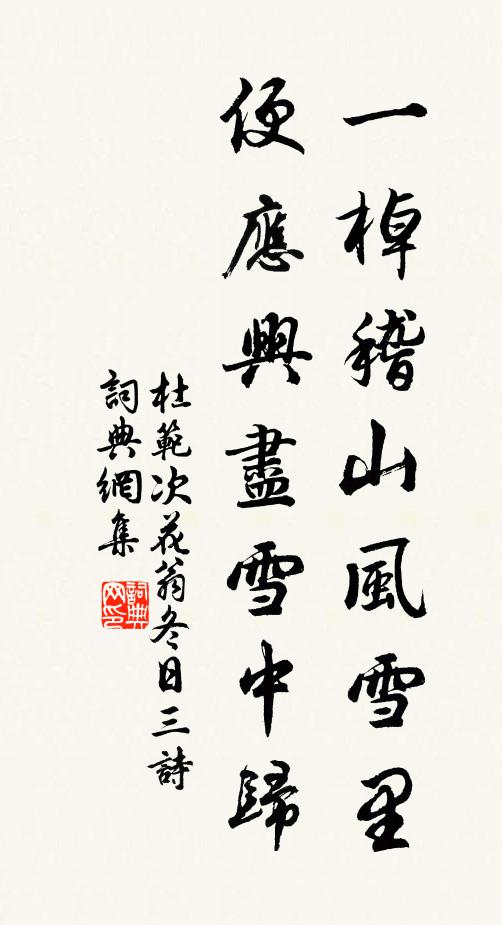 一棹稽山風雪里
便應興盡雪中歸
杜範次花翁冬日三詩
詞典網集
詞典
网印